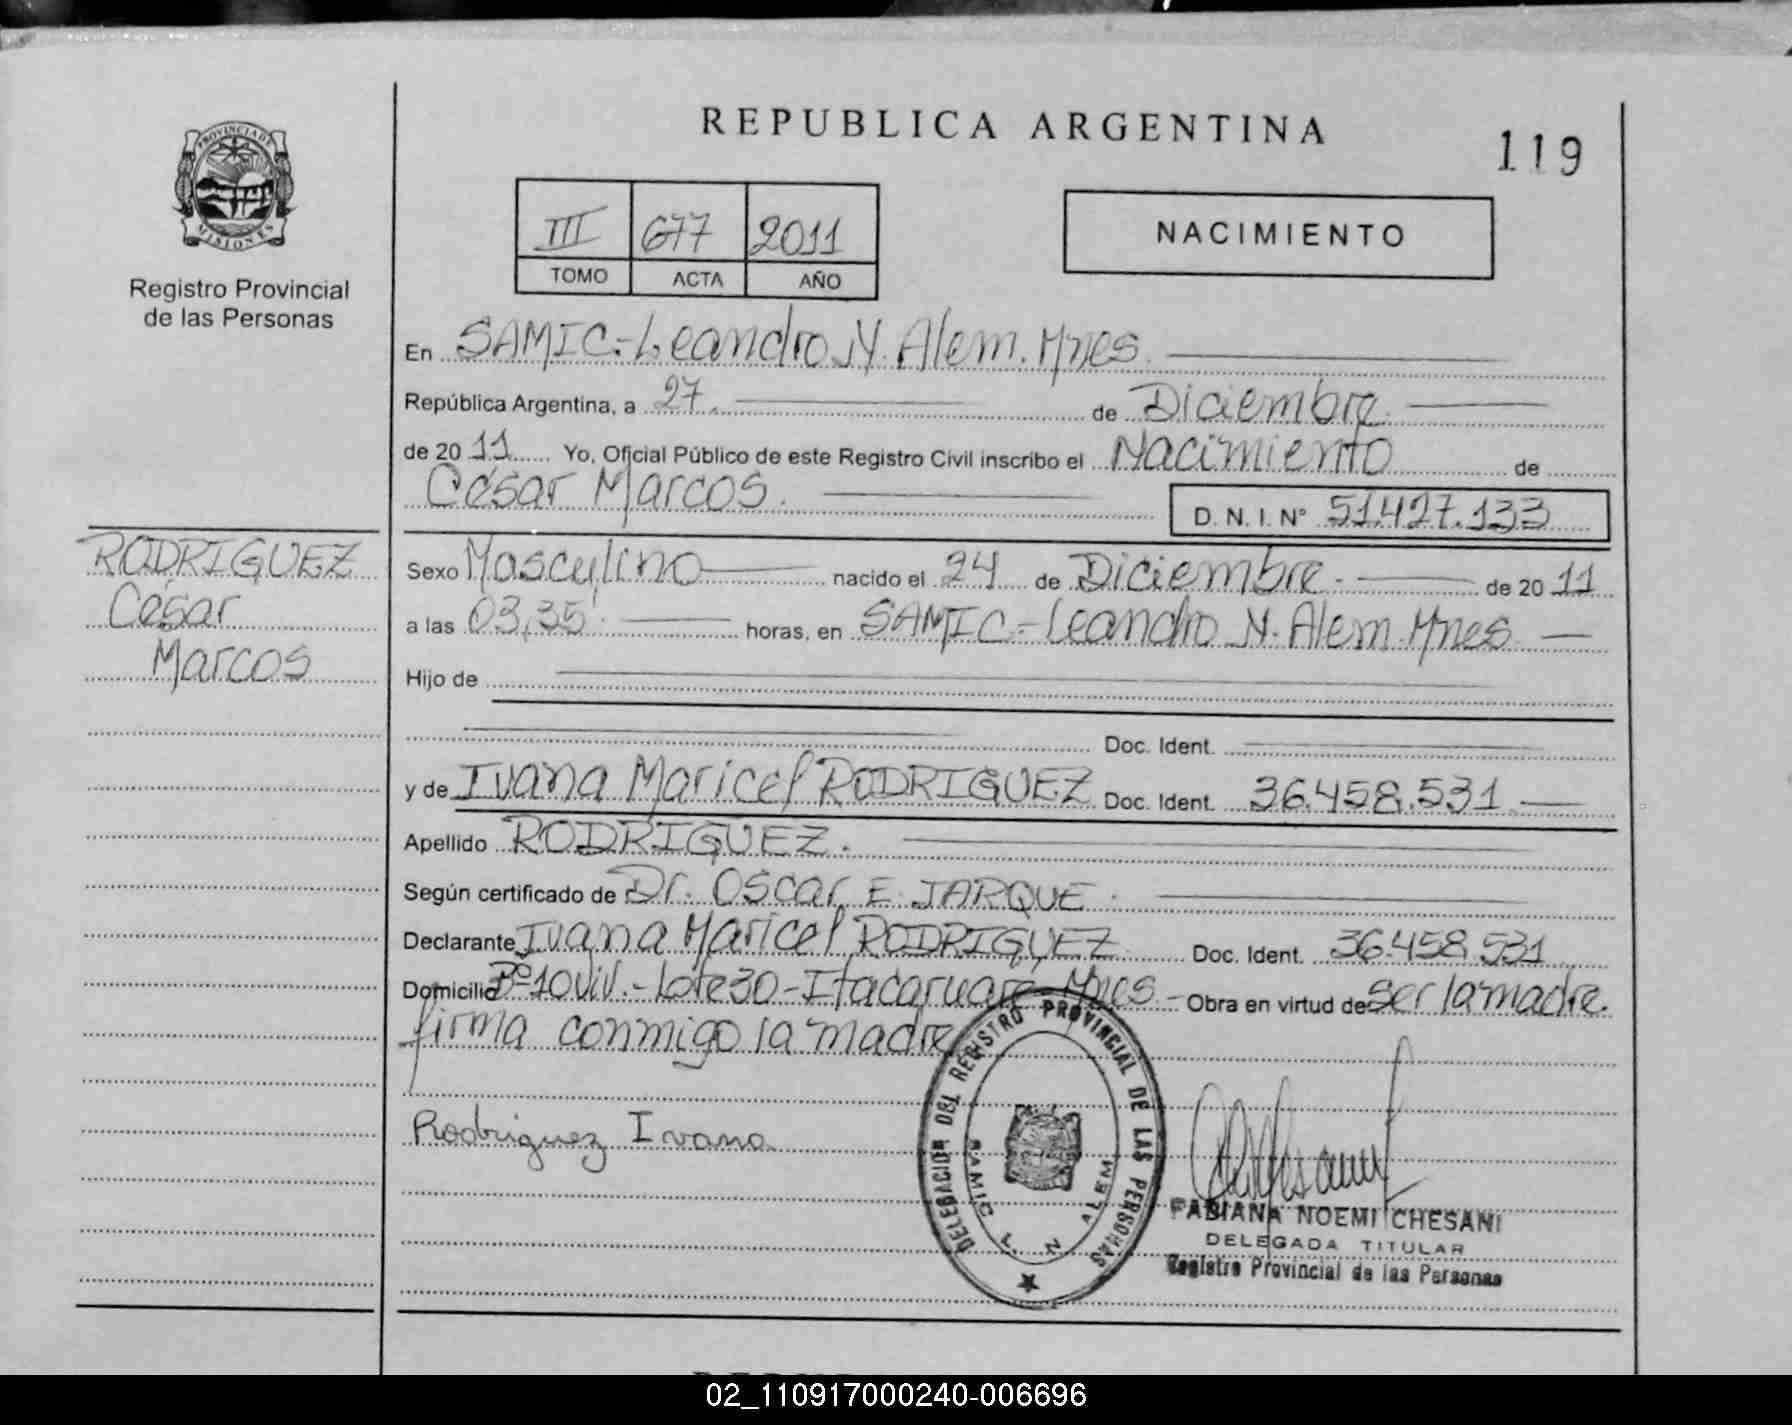 REPUBLICA ARGENTINA
119
PROVINCIA DE
MISIONES
Registro Provincial
de las Personas
III 677 2011
TOMO ACTA AÑO
NACIMIENTO
En SAMIC.-Leandro N. Alem. Mnes.
República Argentina, a 27. de Diciembre.
de 2011 Yo, Oficial Público de este Registro Civil inscribo el Nacimiento de
César Marcos.
D. N. I. N° 51.427.133
RODRIGUEZ
César
Marcos
Sexo Masculino nacido el 24 de Diciembre. de 2011
a las 03,35'. horas, en SAMIC.-Leandro N. Alem. Mnes
Hijo de
Doc. Ident.
y de Ivana Maricel RODRIGUEZ Doc. Ident. 36.458.531
Apellido RODRIGUEZ.
Según certificado de Dr. Oscar E. JARQUE.
Declarante Ivana Maricel RODRIGUEZ Doc. Ident. 36.458.531
Domicilio Bº 10 Viv.-Lote 30-Itacaruare Mnes.- Obra en virtud de Ser la madre.
firma conmigo la madre
Rodriguez Ivana
DELEGACION DEL REGISTRO PROVINCIAL DE LAS PERSONAS
SAMIC L. N. ALEM
FABIANA NOEMI CHESANI
DELEGADA TITULAR
Registro Provincial de las Personas
02_110917000240-006696